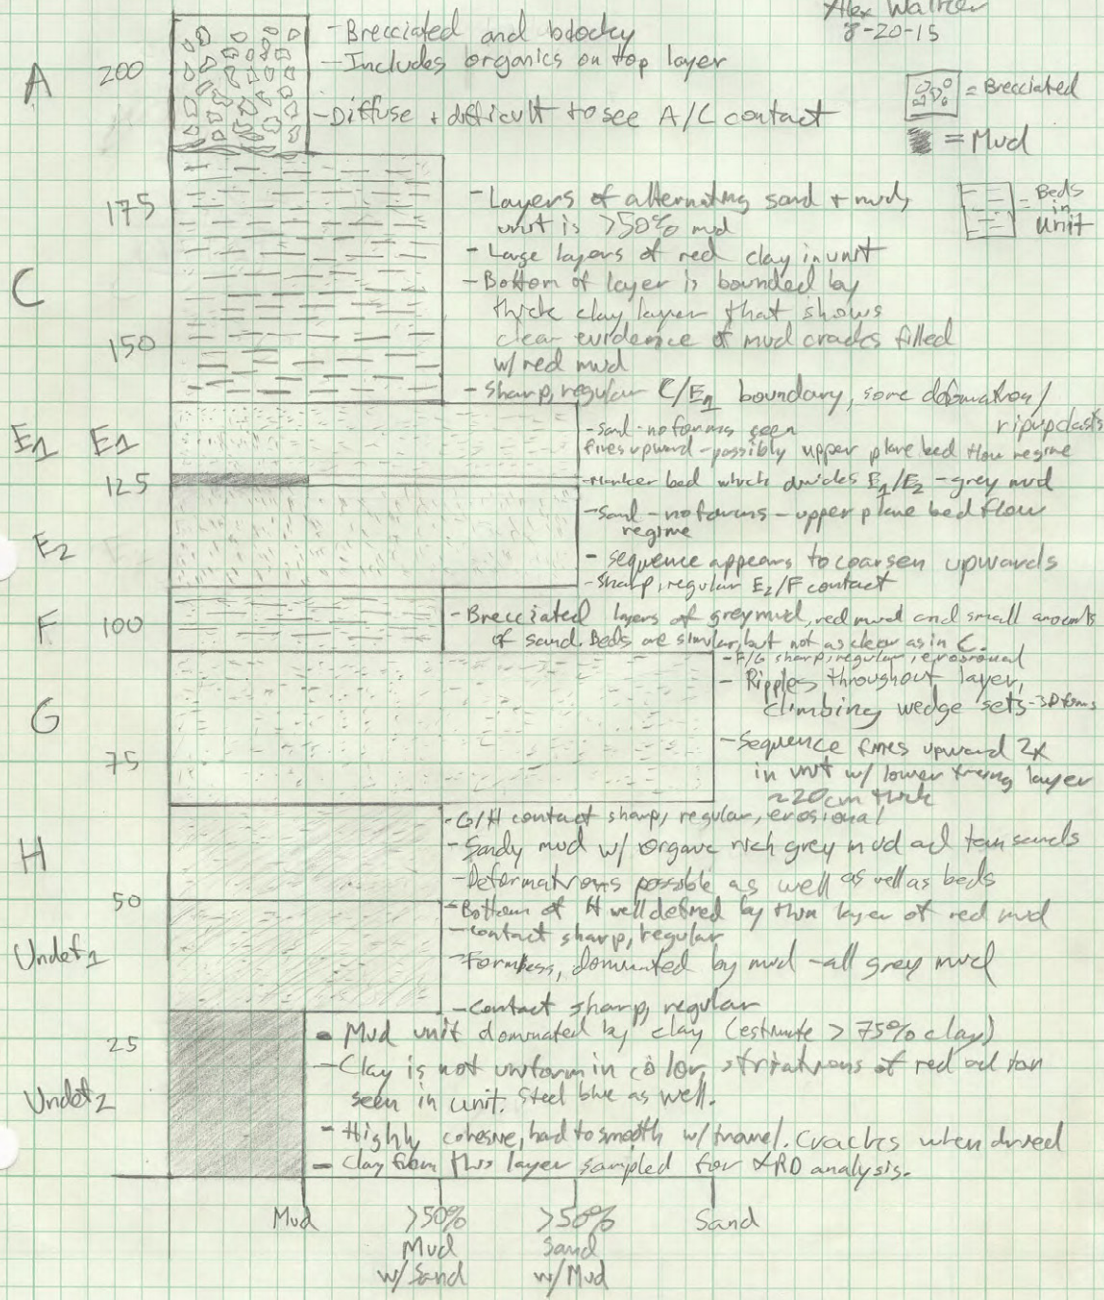 Alex Walker
8-20-15
- Brecciated and blocky
- Includes organics on top layer
A 200
- Diffuse + difficult to see A/C contact
= Brecciated
= Mud
= Beds in Unit
175
- Layers of alternating sand + mud,
unit is >50% mud
- Large layers of red clay in unit
C
- Bottom of layer is bounded by
thick clay layer that shows
150
clear evidence of mud cracks filled
w/ red mud
- Sharp, regular C/E1 boundary, some deformation/
ripupclasts
E1 E1
- Sand - no forms seen
fines upward - possibly upper plane bed flow regime
125
- Marker bed which divides E1/E2 - grey mud
- Sand - no forms - upper plane bed flow
regime
E2
- sequence appears to coarsen upwards
- Sharp, regular E2/F contact
F 100
- Brecciated layers of grey mud, red mud and small amounts
of sand. Beds are similar, but not as clear as in C.
- F/G sharp, regular, erosional
- Ripples throughout layer,
climbing wedge sets - 3D forms
G
75
- Sequence fines upward 2x
in unit w/ lower fining layer
~20cm thick
- G/H contact sharp, regular, erosional
H
- Sandy mud w/ organic rich grey mud ad tan sands
- Deformations possible as well as well as beds
50
- Bottom of H well defined by thin layer of red mud
- contact sharp, regular
Undef1
- Formless, dominated by mud - all grey mud
- Contact sharp, regular
25
- Mud unit dominated by clay (estimate > 75% clay)
- Clay is not uniform in color, striations of red ad tan
seen in unit. Steel blue as well.
Undef2
- Highly cohesive, hard to smooth w/ trowel. Cracks when dried
- Clay from this layer sampled for XRD analysis.
Mud
>50%
Mud
w/ Sand
>50%
Sand
w/ Mud
Sand